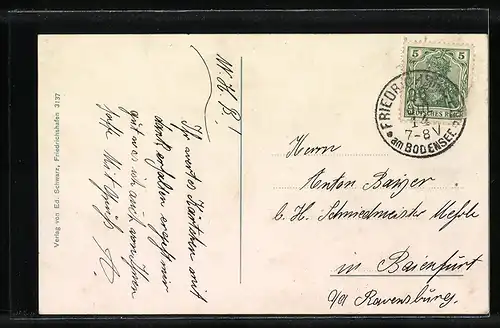 Verlag von Ed. Schwarz, Friedrichshafen 3137
W. H. B!
Ihr wertes Kärtchen mit
dank erhalten ergeht mir
gut was ich auch von Ihnen
hoffe Mit Gruß
5 5
DEUTSCHES REICH
FRIEDRICHSHAFEN
14
7-8 V
* am BODENSEE
Herrn
Anton
b. H. Schmiedmeister
in Baienfurt
o/a Ravensburg.